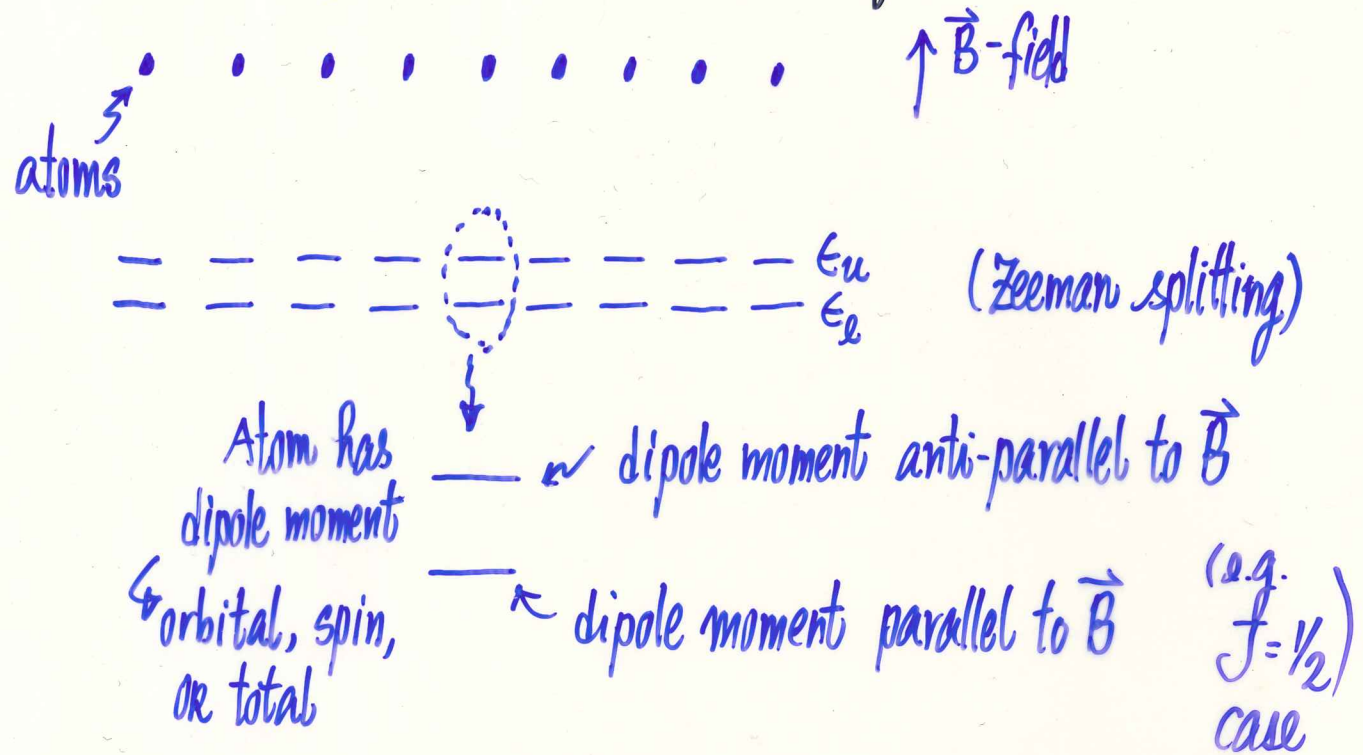 ↑ B⃗-field
atoms
ϵu (Zeeman splitting)
ϵl
Atom has dipole moment
orbital, spin, or total
dipole moment anti-parallel to B⃗
dipole moment parallel to B⃗
(e.g. J=1/2) case